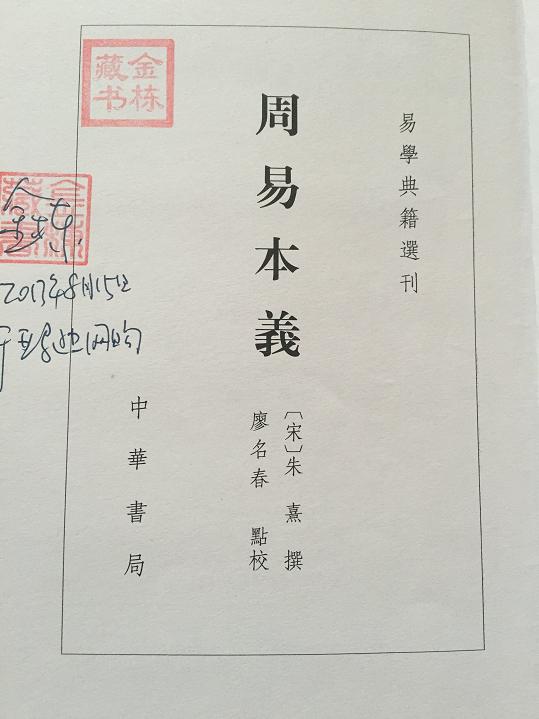 易學典籍選刊
周易本義
〔宋〕朱熹 撰
廖名春 點校
中華書局
金栋
藏书
金栋
2013年8月15日
于亚马逊网购